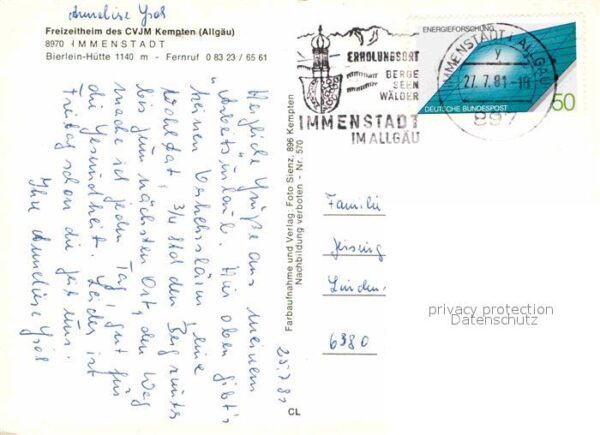 Anneliese
Freizeitheim des CVJM Kempten (Allgäu)
8970 IMMENSTADT
Bierlein-Hütte 1140 m - Fernruf 0 83 23 / 65 61
Herzliche Grüße aus meinem
"Arbeitsurlaub". Hier oben gibt's
keinen Verkehrslärm, eine
3/4 Std den Berg runter
bis zum nächsten Ort, den Weg
mache ich jeden Tag, gut für
die Gesundheit. Leider ist
Freitag schon die Zeit um.
Ihre Anneliese
25.7.81
Farbaufnahme und Verlag: Foto Sienz, 896 Kempten
Nachbildung verboten - Nr. 570
CL
ERHOLUNGSORT
BERGE
SEEN
WÄLDER
IMMENSTADT
IM ALLGÄU
IMMENSTADT I. ALLGÄU
y
27.7.81-18
897
ENERGIEFORSCHUNG
DEUTSCHE BUNDESPOST
50
Familie
Linden-
6380
privacy protection
Datenschutz